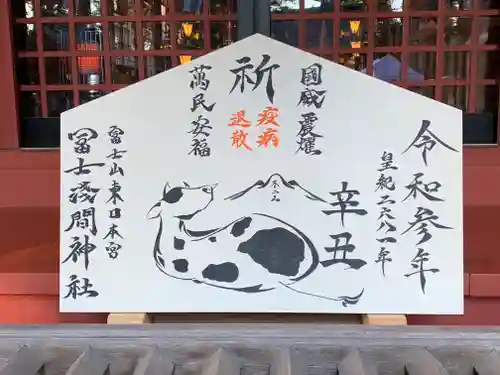 令和参年
皇紀二六八一年
辛丑
國威震燿
祈
疫病
退散
萬民安福
不二山
冨士山東口本宮
冨士浅間神社